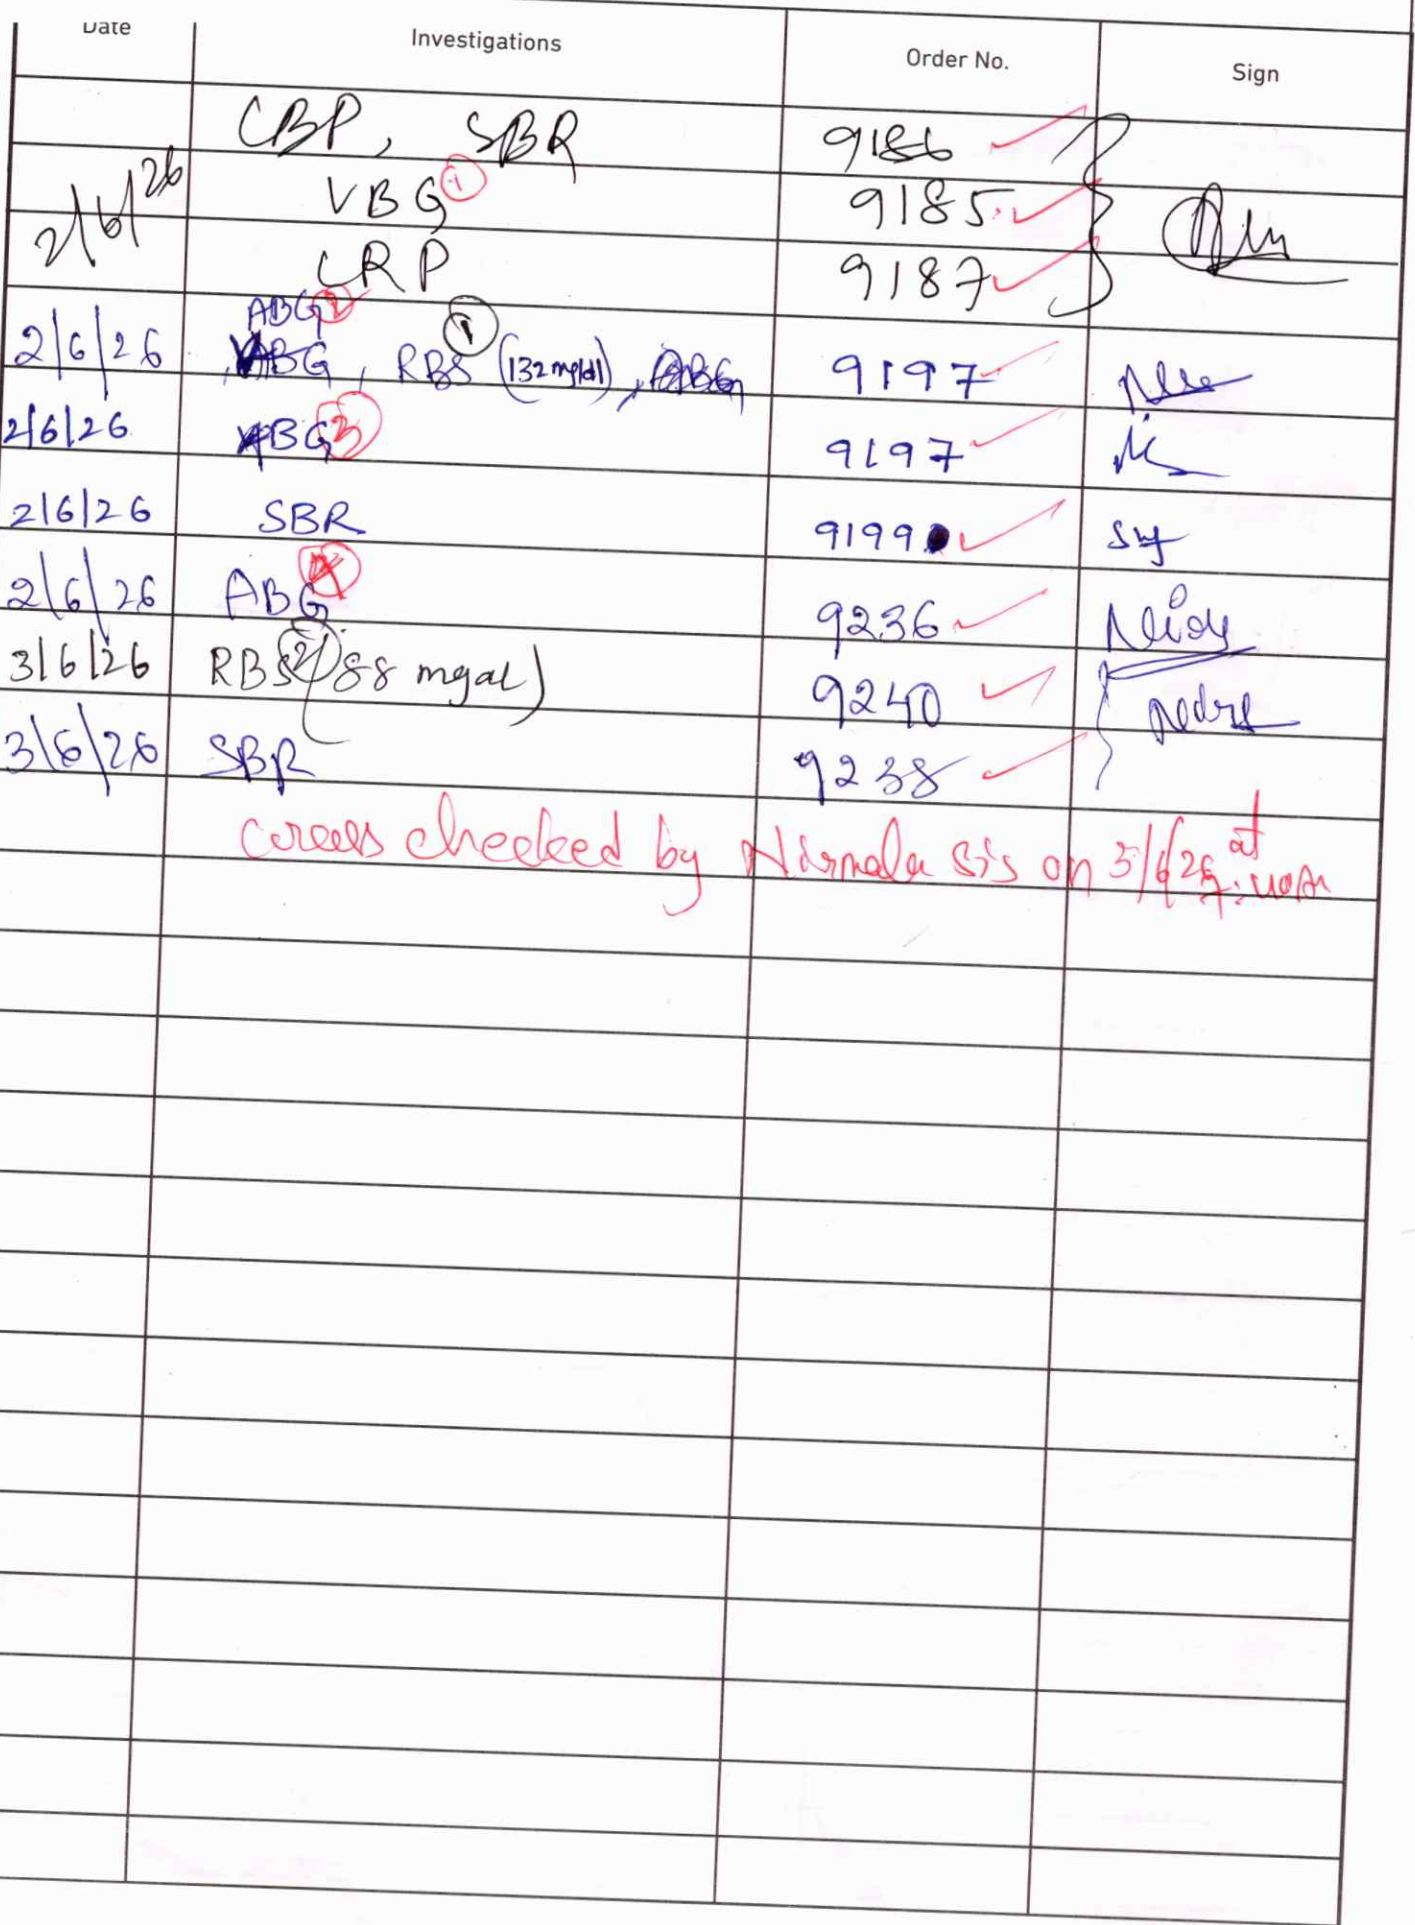 Date Investigations Order No. Sign
CBP, SBR 9186
2/6/26 VBG 1 9185
CRP 9187
ABG 2
2/6/26 , RBS 1 (132 mg/dl), 9197
2/6/26 BG 3 9197
2/6/26 SBR 9199
2/6/26 ABG 4 9236
3/6/26 RBS 2 (88 mgdl) 9240
3/6/26 SBR 9238
checked by Nirmala sis on 3/6/26 at